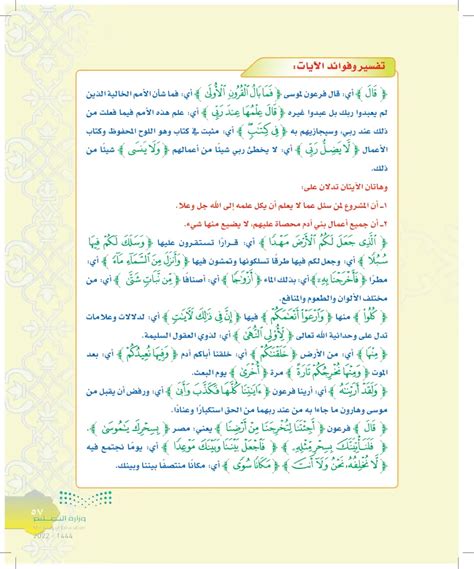 تفسير وفوائد الآيات:
﴿ قَالَ ﴾ أي: قال فرعون لموسى ﴿ فَمَا بَالُ الْقُرُونِ الْأُولَىٰ ﴾ أي: فما شأن الأمم الخالية الذين
لم يعبدوا ربك بل عبدوا غيره ﴿ قَالَ عِلْمُهَا عِندَ رَبِّي ﴾ أي: علم هذه الأمم فيما فعلت من
ذلك عند ربي، وسيجازيهم به ﴿ فِي كِتَابٍ ﴾ أي: مثبت في كتاب وهو اللوح المحفوظ وكتاب
الأعمال ﴿ لَّا يَضِلُّ رَبِّي ﴾ أي: لا يخطئ ربي شيئًا من أعمالهم ﴿ وَلَا يَنسَى ﴾ شيئًا من
ذلك.
وهاتان الآيتان تدلان على:
١- أن المشروع لمن سئل عما لا يعلم أن يكل علمه إلى الله جل وعلا.
٢- أن جميع أعمال بني آدم محصاة عليهم، لا يضيع منها شيء.
﴿ الَّذِي جَعَلَ لَكُمُ الْأَرْضَ مَهْدًا ﴾ أي: قرارًا تستقرون عليها ﴿ وَسَلَكَ لَكُمْ فِيهَا
سُبُلًا ﴾ أي: وجعل لكم فيها طرقًا تسلكونها وتمشون فيها ﴿ وَأَنزَلَ مِنَ السَّمَاءِ مَاءً ﴾ أي:
مطرًا ﴿ فَأَخْرَجْنَا بِهِ ﴾ أي: بذلك الماء ﴿ أَزْوَاجًا ﴾ أي: أصنافًا ﴿ مِّن نَّبَاتٍ شَتَّىٰ ﴾ أي: من
مختلف الألوان والطعوم والمنافع.
﴿ كُلُوا ﴾ منها ﴿ وَارْعَوْا أَنْعَامَكُمْ ﴾ فيها ﴿ إِنَّ فِي ذَٰلِكَ لَآيَاتٍ ﴾ أي: لدلالات وعلامات
تدل على وحدانية الله تعالى ﴿ لِّأُولِي النُّهَىٰ ﴾ أي: لذوي العقول السليمة.
﴿ مِنْهَا ﴾ أي: من الأرض ﴿ خَلَقْنَاكُمْ ﴾ أي: خلقنا أباكم آدم ﴿ وَفِيهَا نُعِيدُكُمْ ﴾ أي: بعد
الموت ﴿ وَمِنْهَا نُخْرِجُكُمْ تَارَةً ﴾ مرة ﴿ أُخْرَىٰ ﴾ يوم البعث.
﴿ وَلَقَدْ أَرَيْنَاهُ ﴾ أي: أرينا فرعون ﴿ آيَاتِنَا كُلَّهَا فَكَذَّبَ وَأَبَىٰ ﴾ أي: ورفض أن يقبل من
موسى وهارون ما جاءا به من عند ربهما من الحق استكبارًا وعنادًا.
﴿ قَالَ ﴾ فرعون ﴿ أَجِئْتَنَا لِتُخْرِجَنَا مِنْ أَرْضِنَا ﴾ يعني: مصر ﴿ بِسِحْرِكَ يَا مُوسَىٰ ﴾
﴿ فَلَنَأْتِيَنَّكَ بِسِحْرٍ مِّثْلِهِ ﴾ ﴿ فَاجْعَلْ بَيْنَنَا وَبَيْنَكَ مَوْعِدًا ﴾ أي: يومًا نجتمع فيه
﴿ لَّا نُخْلِفُهُ نَحْنُ وَلَا أَنتَ ﴾ ﴿ مَكَانًا سُوًى ﴾ أي: مكانًا منتصفًا بيننا وبينك.
٥٧
وزارة التعليم
Ministry of Education
2022 - 1444